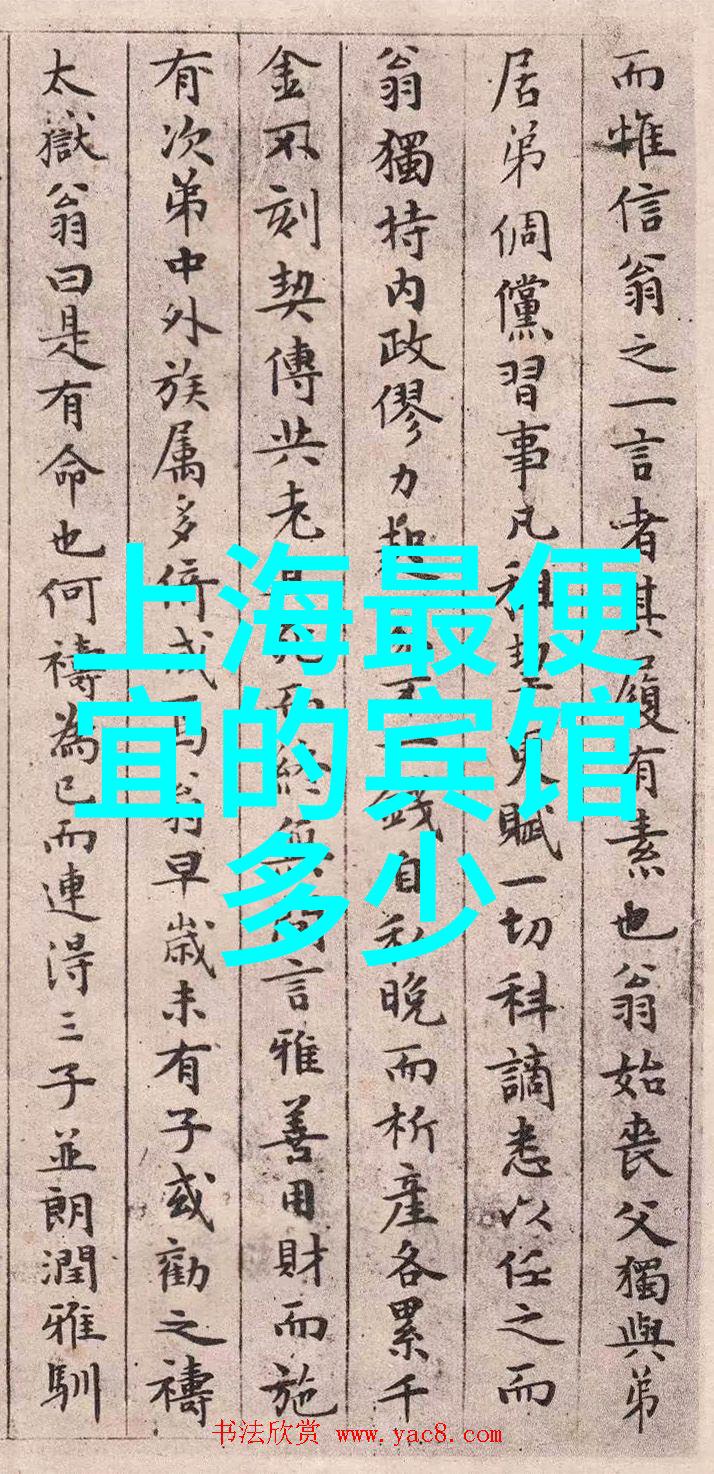 而惟信翁之一言者其履有素也翁始喪父獨與弟
居弟倜儻習事凡租更賦一切科謫悉以任之而
翁獨持内政僇力起不一錢自私晚而析產各累千
金不刻契傳共老且死而終無間言雅善用財而施
有次第中外族属多倚成焉翁早歲未有子或勸之禱
太嶽翁曰是有命也何禱為已而連得三子並朗潤雅馴
上海最便
宜的宾馆
多少
书法欣赏 www.yac8.com